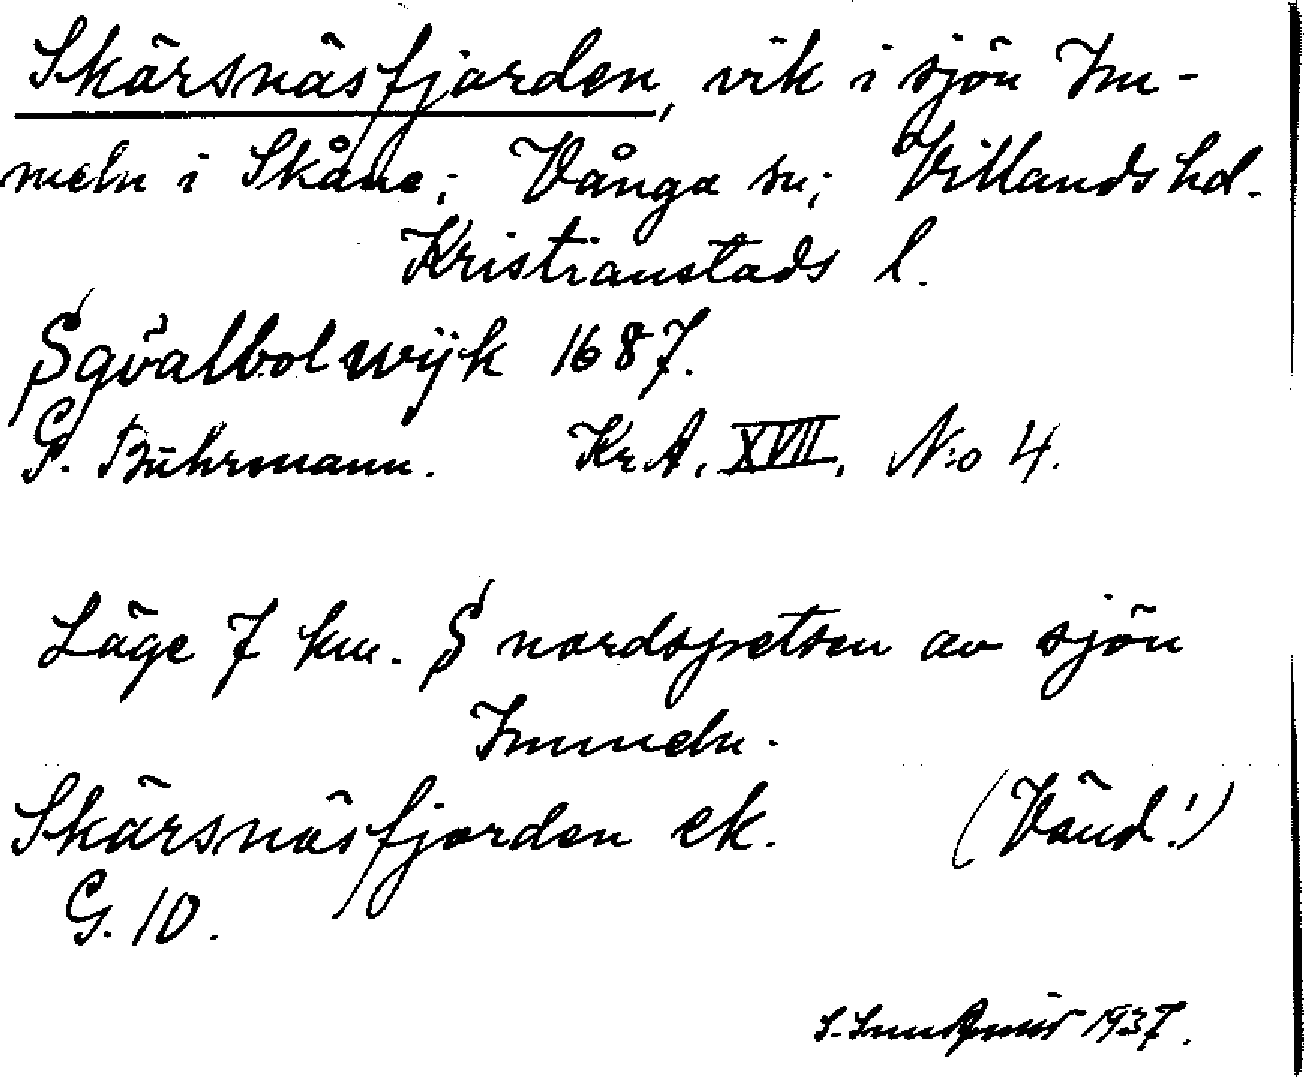 Skärsnäsfjorden, vik i sjön Im-
meln i Skåne; Vånga sn; Villands hd.
Kristianstads l.
Sgöalbol wijk 1687.
G. Buhrmann. Kr. A. XVII. N:o 4.
Läge 7 km. S nordspetsen av sjön
Immeln.
Skärsnäsfjorden ek. (Vänd!)
G. 10.
1937.